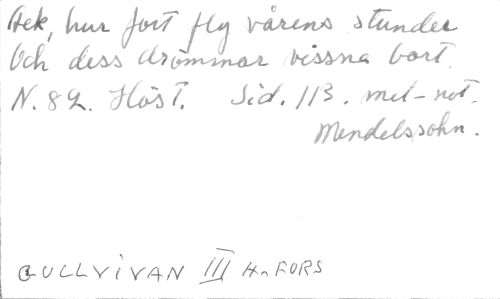 Ack, hur fort fly vårens stunder
Och dess drömmar vissna bort.
N. 82. Höst. Sid. 113. mel-not.
Mendelssohn.
GULLVIVAN III H-FORS